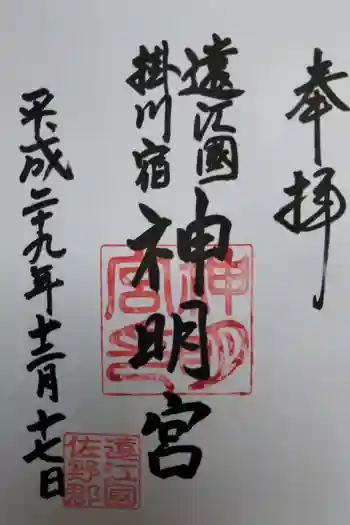 奉拝
遠江國
掛川宿
神明宮
平成二十九年十二月十七日
神明
宮之印
遠江國
佐野郡